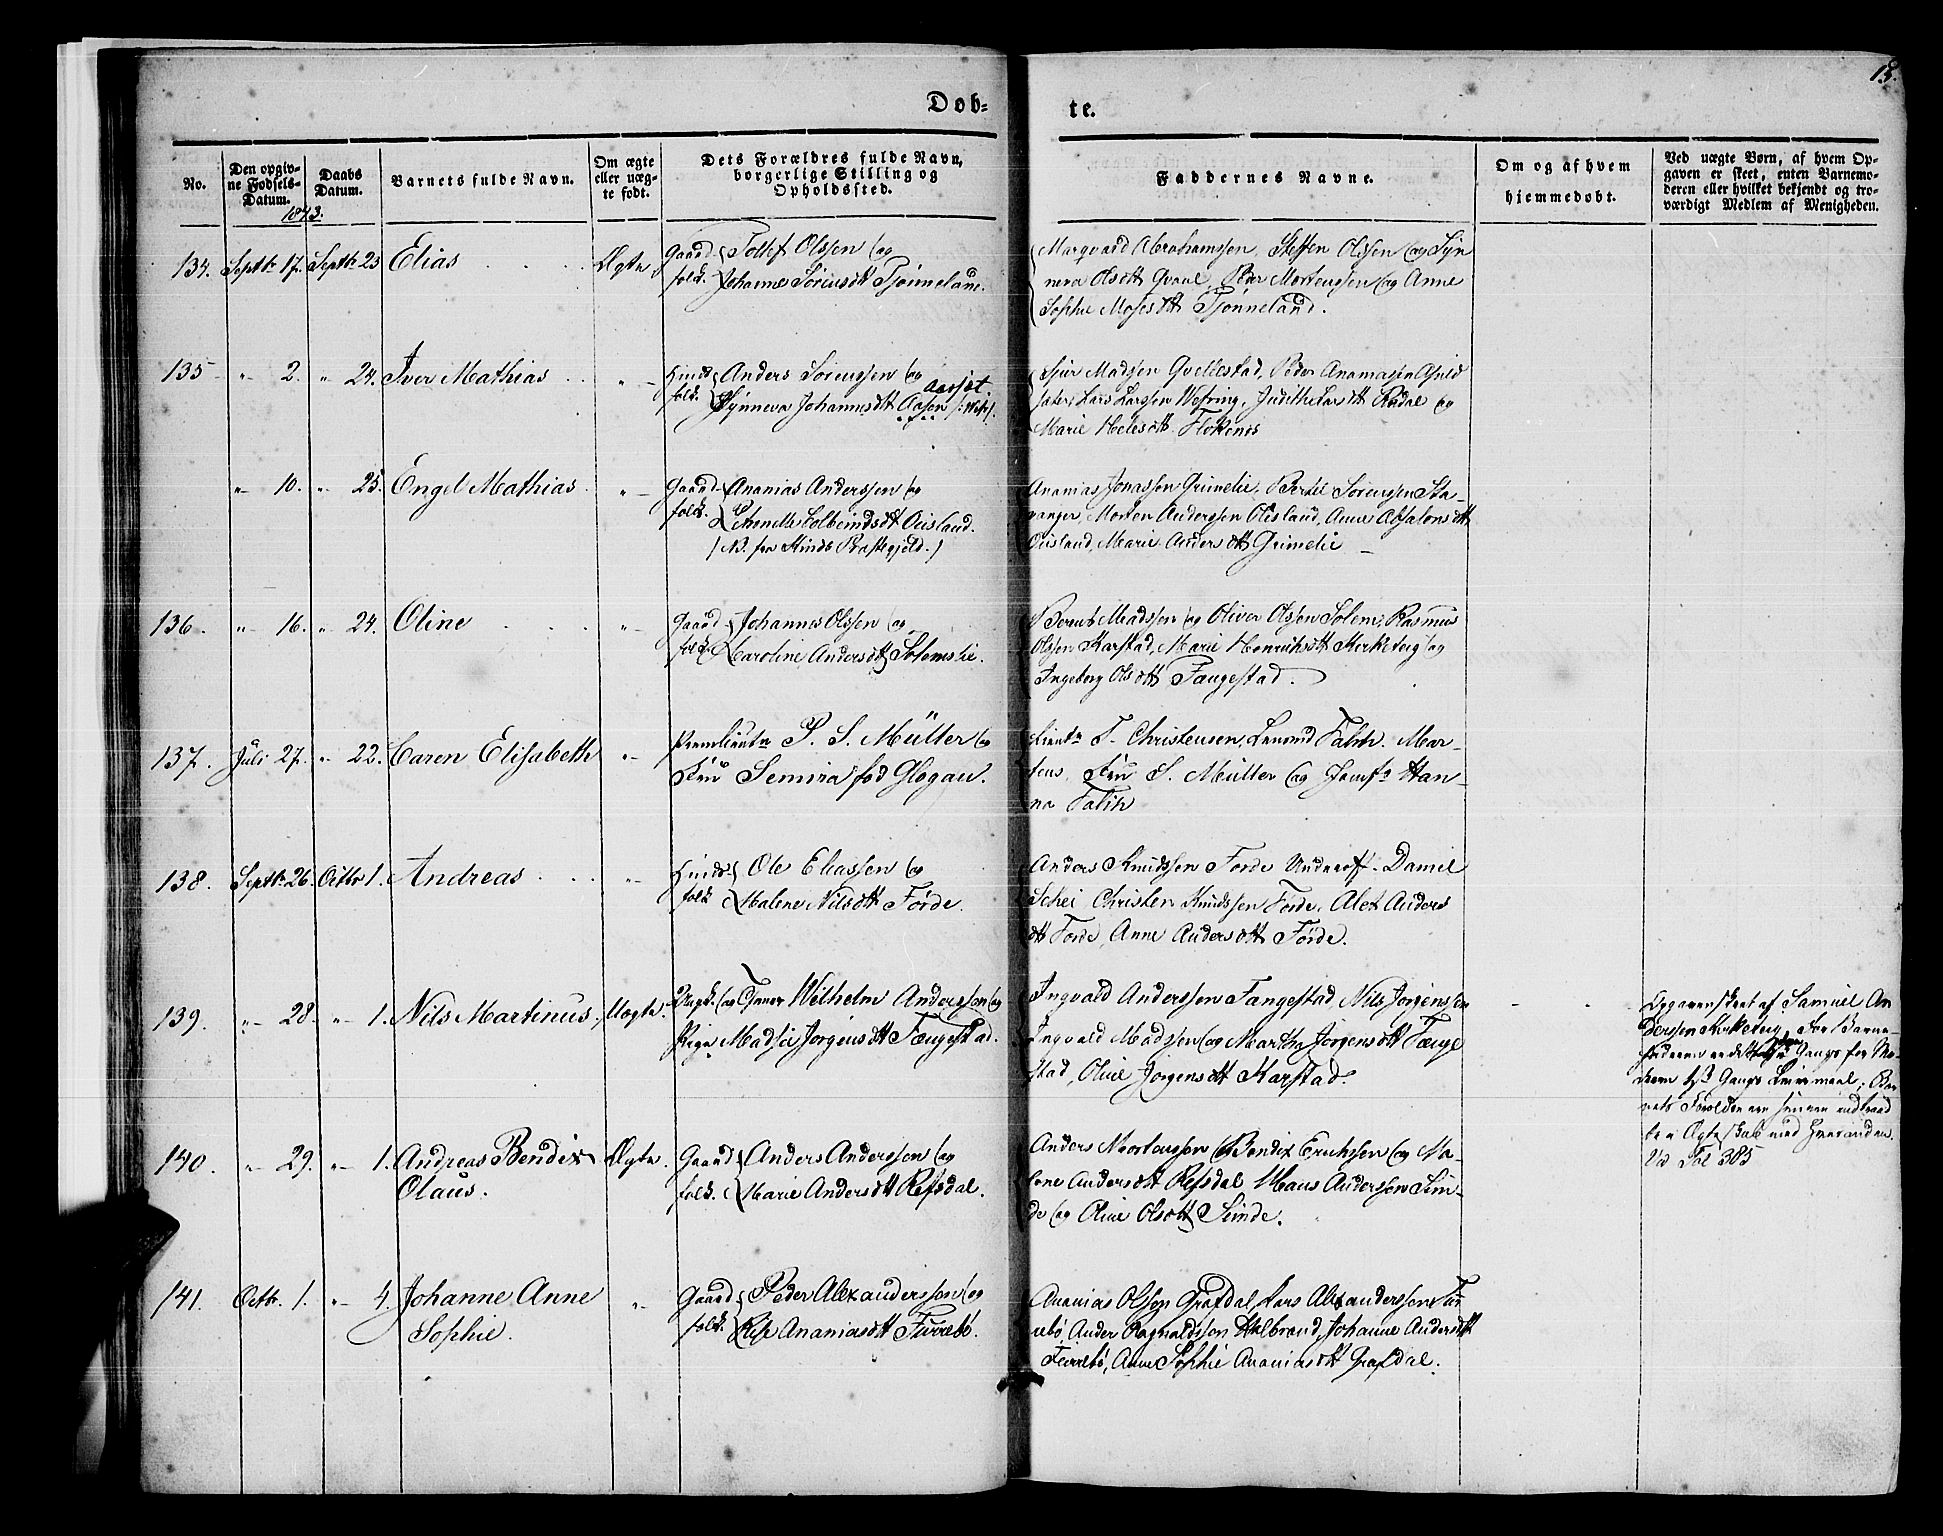 18.
Døb-
te.
No.
Den opgiv-
ne Fødsels-
Datum.
1843.
Daabs
Datum.
Barnets fulde Navn.
Om ægte
eller uæg-
te født.
Dets Forældres fulde Navn,
borgerlige Stilling og
Opholdssted.
Faddernes Navne.
Om og af hvem
hjemmedøbt.
Ved uægte Børn, af hvem Op-
gaven er skeet, enten Barnemo-
deren eller hvilket bekjendt og tro-
værdigt Medlem af Menigheden.
134. Septbr 17. Septbr 25 Elias Ægte
Gaard- Tollef Olssen og
folk. Johanne Sørensdtt Tjønneland.
Marqvard Abrahamssen, Steffen Olssen og Syn
neva Olsdtt Qvaal, Peder Mortenssen og Anne
Sophie Mosesdtt Tjønneland.
135 " 2. " 24. Iver Mathias "
Huus Anders Sørenssen og
folk. Synneva Johannesdtt Aasen
Sjur Madsen Qvellestad, Peder Ananiassen
Lars Larssen Wefring, Judithe Larsdtt og
Marie
" 10. " 25. Engel Mathias "
Gaard- Ananias Anderssen og
folk.
Ananias Jonassen Grimelie, Bertel Sørenssen Sta-
vanger, Morten Anderssen Anne Absalonsdtt
Marie Andersdtt Grimelie
136. " 16. " 24. Oline "
Gaard Johannes Olssen og
folk Caroline Andersdtt Solemslie.
Bernt Madssen og Oliver Olssen Solem, Rasmus
Olssen Karstad, Marie Henriksdtt Kirketeig og
Ingeborg Olsdtt Fangestad.
137. Juli 27. " 22. Caren Elisabeth "
Premlieutn P. S. Müller og
Fru Semira fød Glogau.
Lieutn T. Christensen, Falch. Mar-
tens, Fru S. Müller og Jomfr Han-
na Falch
138. Septbr 26. Octbr 1. Andreas "
Huus Ole Eliassen og
folk Malene Nilsdtt Førde.
Anders Knudssen Førde Underoff. Daniel
Schei Christen Knudssen Førde, Alet Anders
dtt Førde, Anne Andersdtt Førde.
139. " 28. " 1. Nils Martinus. Uægte.
Ungk. og Tjener Wilhelm Anderssen og
Pige Madsia Jørgensdtt Fangestad.
Ingvald Anderssen Fangestad, Nils Jørgenssen
Ingvald Madssen og Martha Jørgensdtt Fange
stad, Olive Jørgensdtt Karstad.
Opgaven skeet af Samuel An
derssen Kirketeig, For Barne-
faderen er dette Gangs for Mo-
deren 1ste Gangs Leiermaal; Bar
nets Forældre ere senere indtraad
te i Ægteskab med hverandre.
Vid Fol 385
140. " 29. " 1. Andreas Bendix Ægte.
Olaus.
Gaard Anders Anderssen og
folk. Marie Andersdtt Refsdal.
Anders Mortenssen Bendix Erichssen og Ma-
lene Andersdtt Refsdal Anderssen Sun-
de og Oline Olsdtt Sunde.
141. Octbr. 1. " 4. Johanne Anne "
Sophie.
Gaard Peder Alexanderssen og
folk. Ananiasdtt Furrebø.
Ananias Olssen Grafdal, Lars Alexanderssen Fur
rebø, Anders Ragnaldssen Johanne Andersdtt
Furrebø, Anne Sophie Ananiasdtt Grafdal.